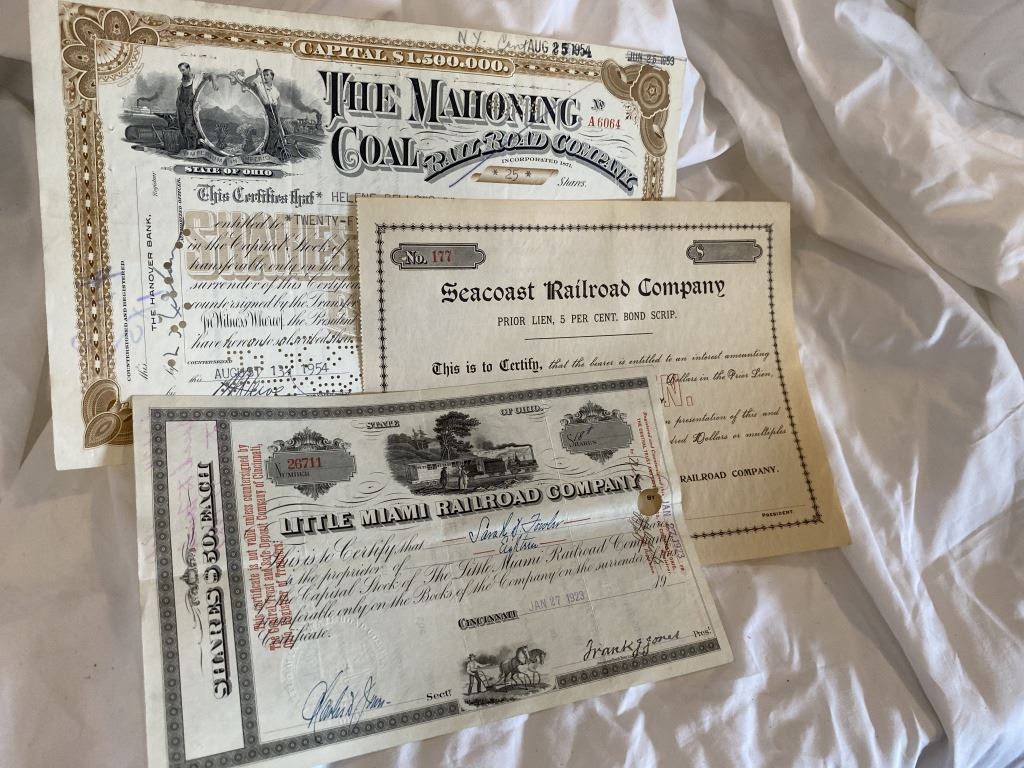 N.Y. Cent AUG 25 1954
JUN 25 1953
CAPITAL $1,500,000.
THE MAHONING
COAL RAILROAD COMPANY
No
A6064
INCORPORATED 1871.
* 25 *
Shares.
STATE OF OHIO
This Certifies that * HELENE
entitled to *TWENTY-F
SHARES
in the Capital Stock of
transferable only on the
surrender of this Certific
countersigned by the Transfer
In Witness Whereof, the President
have hereunto subscribed their
COUNTERSIGNED
this AUGUST 13, 1954
COUNTERSIGNED AND REGISTERED
this
THE HANOVER BANK,
Registrar
by
AUTHORIZED OFFICER.
No. 177
$
Seacoast Railroad Company
PRIOR LIEN, 5 PER CENT. BOND SCRIP.
This is to Certify, that the bearer is entitled to an interest amounting
Dollars in the Prior Lien,
N.
n presentation of this and
dred Dollars or multiples
RAILROAD COMPANY.
PRESIDENT.
STATE OF OHIO.
26711
NUMBER
18
SHARES
LITTLE MIAMI RAILROAD COMPANY
This is to Certify that Sarah J. Fowler
is the proprietor of Eighteen Shares
Capital Stock of The Little Miami Railroad Company,
transferable only on the Books of the Company on the surrender of
Certificate.
19
CINCINNATI JAN 27 1923
Sect.
Frank J. Jones Pres.
SHARES $50. EACH
This certificate is not valid, unless countersigned by
The Central Trust and Safe Deposit Company of Cincinnati,
the Registrar of Transfers.
BY